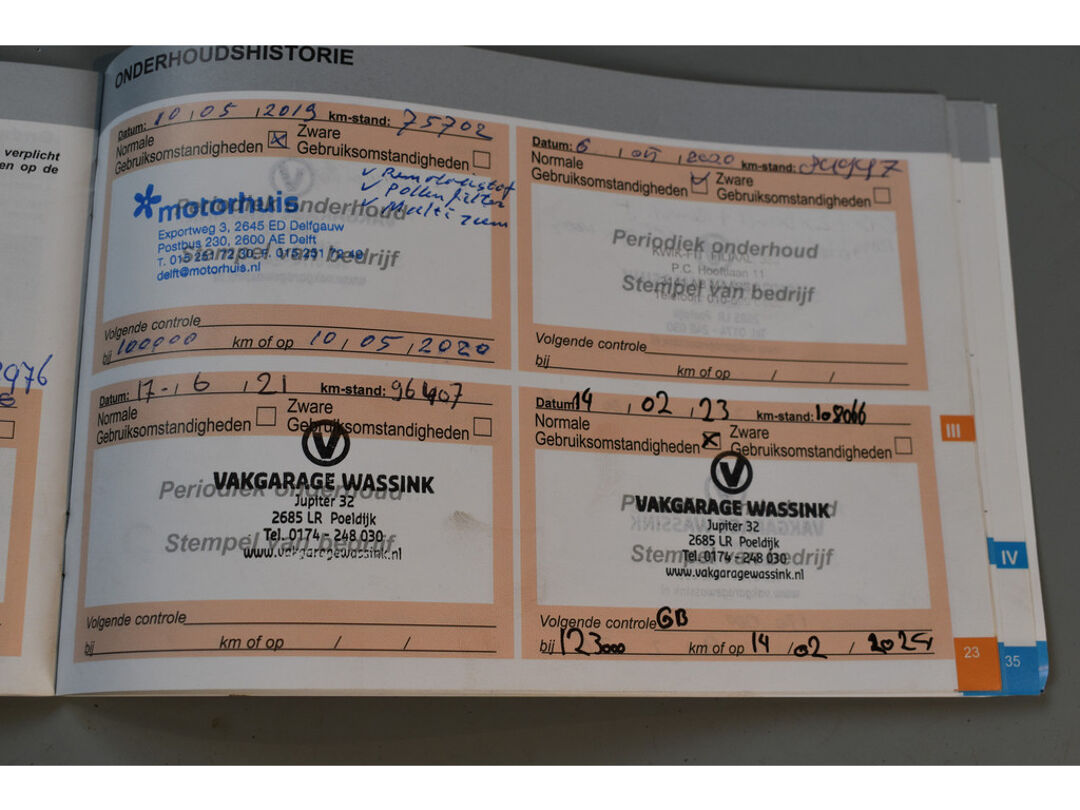 ONDERHOUDSHISTORIE
verplicht
en op de
2976
Datum: 10 , 05 , 2019 km-stand: 75702
Normale Gebruiksomstandigheden ☒ Zware Gebruiksomstandigheden ☐
✓ Remvloeistof
✓ Pollenfilter
✓ Multiriem
motorhuis
Periodiek onderhoud
Exportweg 3, 2645 ED Delfgauw
Postbus 230, 2600 AE Delft
Stempel van bedrijf
T. 015 251 72 30, F. 015 251 72 49
delft@motorhuis.nl
Volgende controle
bij 100000 km of op 10 , 05 , 2020
Datum: 6 , 05 , 2020 km-stand:
Normale Gebruiksomstandigheden Zware Gebruiksomstandigheden
Periodiek onderhoud
P.C. Hooftlaan 11
Stempel van bedrijf
Volgende controle
bij km of op / /
Datum: 17 - , 6 , 21 km-stand: 96407
Normale Gebruiksomstandigheden Zware Gebruiksomstandigheden
VAKGARAGE WASSINK
Periodiek onderhoud
Jupiter 32
2685 LR Poeldijk
Stempel van bedrijf
Tel. 0174 - 248 030
www.vakgaragewassink.nl
Volgende controle
bij km of op / /
Datum: 14 , 02 , 23 km-stand: 108066
Normale Gebruiksomstandigheden ☒ Zware Gebruiksomstandigheden ☐
VAKGARAGE WASSINK
Periodiek onderhoud
Jupiter 32
2685 LR Poeldijk
Stempel van bedrijf
Tel. 0174 - 248 030
www.vakgaragewassink.nl
Volgende controle GB
bij 123000 km of op 14 / 02 / 2024
III
IV
23
35